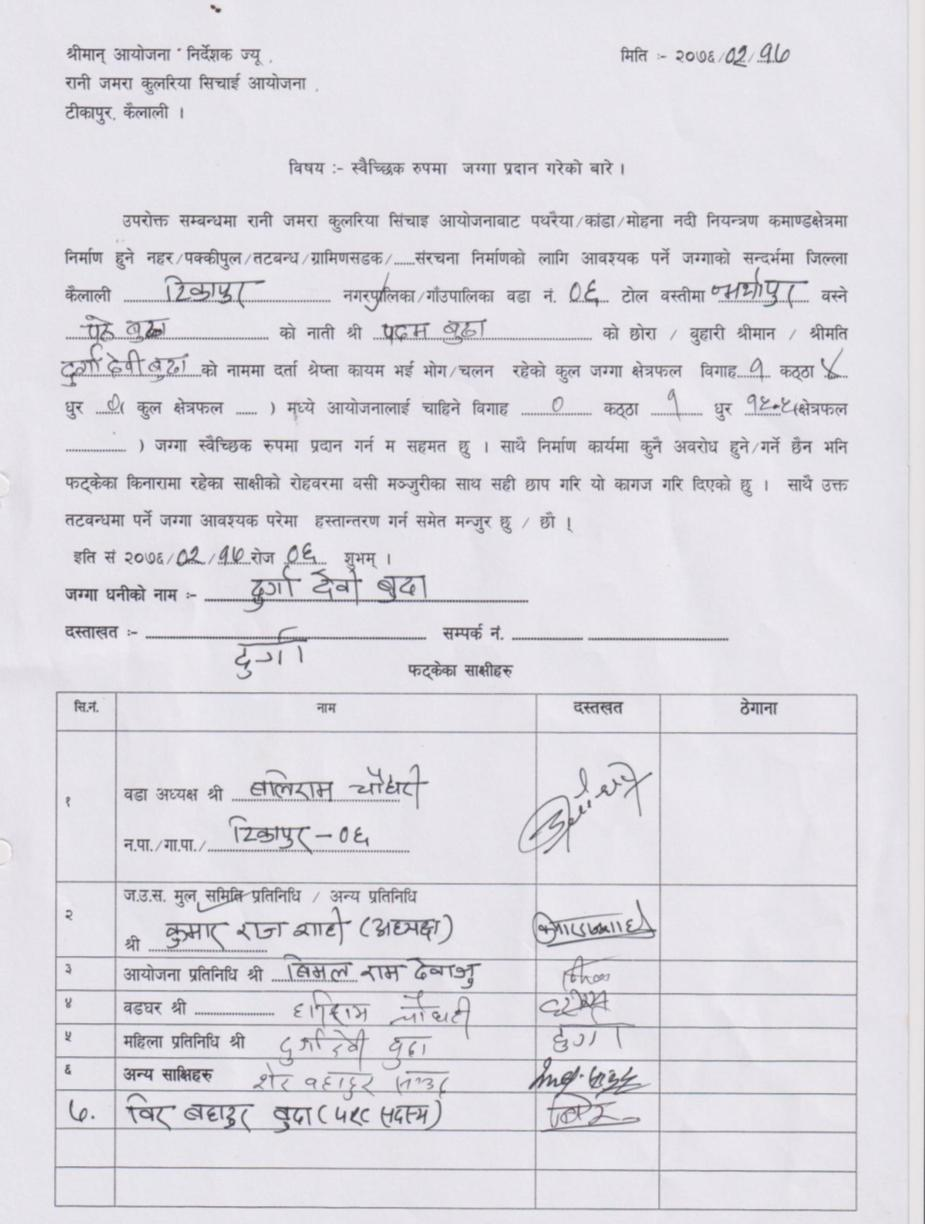 श्रीमान् आयोजना निर्देशक ज्यू , मिति :- २०७६/02/१७
रानी जमरा कुलरिया सिचाई आयोजना ,
टीकापुर, कैलाली ।
विषय :- स्वैच्छिक रुपमा जग्गा प्रदान गरेको बारे ।
उपरोक्त सम्बन्धमा रानी जमरा कुलरिया सिंचाइ आयोजनाबाट पथरैया/कांडा/मोहना नदी नियन्त्रण कमाण्डक्षेत्रमा
निर्माण हुने नहर/पक्कीपुल/तटबन्ध/ग्रामिणसडक/......संरचना निर्माणको लागि आवश्यक पर्ने जग्गाको सन्दर्भमा जिल्ला
कैलाली टिकापुर नगरपालिका/गाँउपालिका वडा नं. ०६ टोल वस्तीमा वस्ने
बुढा को नाती श्री पदम बुढा को छोरा / बुहारी श्रीमान / श्रीमति
दुर्गा देवी बुढा को नाममा दर्ता श्रेष्ता कायम भई भोग/चलन रहेको कुल जग्गा क्षेत्रफल विगाह १ कठ्ठा ४
धुर कुल क्षेत्रफल ...... ) मध्ये आयोजनालाई चाहिने विगाह ० कठ्ठा १ धुर (क्षेत्रफल
................ ) जग्गा स्वैच्छिक रुपमा प्रदान गर्न म सहमत छु । साथै निर्माण कार्यमा कुनै अवरोध हुने/गर्ने छैन भनि
फट्केका किनारामा रहेका साक्षीको रोहवरमा वसी मञ्जुरीका साथ सही छाप गरि यो कागज गरि दिएको छु । साथै उक्त
तटवन्धमा पर्ने जग्गा आवश्यक परेमा हस्तान्तरण गर्न समेत मन्जुर छु / छौ ।
इति सं २०७६/02/१७ रोज ०६ शुभम् ।
जग्गा धनीको नाम :- दुर्गा देवी बुढा
दस्ताखत :- सम्पर्क नं.
दुर्गा
फट्केका साक्षीहरु
सि.नं. नाम दस्तखत ठेगाना
१ वडा अध्यक्ष श्री बलिराम चौधरी
न.पा./गा.पा./ टिकापुर - ०६
२ ज.उ.स. मुल समिति प्रतिनिधि / अन्य प्रतिनिधि
श्री कुमार राज शाही (अध्यक्ष)
३ आयोजना प्रतिनिधि श्री बिमल राम
४ वडघर श्री चौधरी
५ महिला प्रतिनिधि श्री दुर्गा देवी बुढा दुर्गा
६ अन्य साक्षिहरु शेर बहादुर
७. विर बहादुर बुढा ( सदस्य)